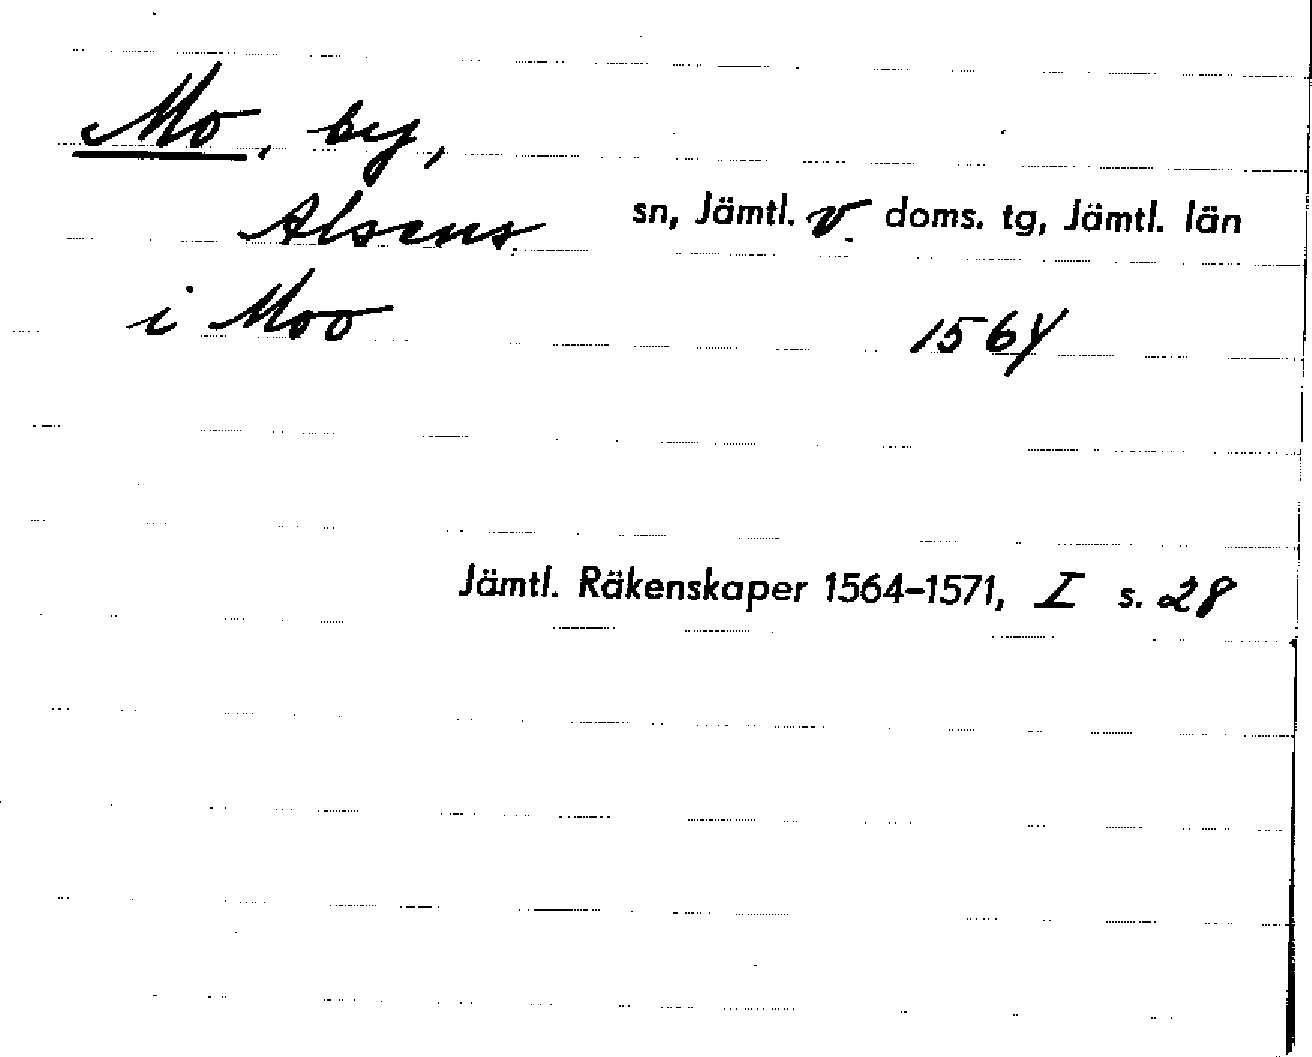 Mo, by,
Alsens sn, Jämtl. v. doms. tg, Jämtl. län
i Moo 1564
Jämtl. Räkenskaper 1564–1571, I s. 28